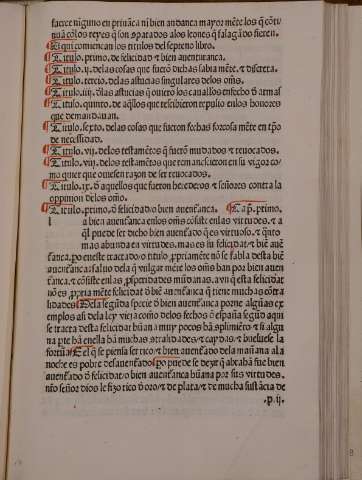 faeree ninguno en priuãça ni bien andança mayor mẽte los q̃ cõti
nuã cõ los reyes q̃ son cõparados alos leones q̃ falagãdo fieren.
Aqui comiençan los titulos del septeno libro.
Titulo. primo. de felicidad τ bien auenturança.
Titulo. ij. delas cosas que fuerõ dichas sabia mẽte. τ discreta.
Titulo. tercio. delas astucias singulares delos oms̃.
Titulo. iiij. ðlas astucias q̃ ouierõ los cauallos en fecho ð armas
Titulo. quinto. de aq̃llos que rescibieron repulso enlos honores
que demandauan.
Titulo. sexto. delas cosas que fueron fechas forçosa mẽte en tp̃o
de necessidad.
Titulo. vij. delos testamẽtos que fuerõ mudados τ reuocados.
Titulo. viij. delos testamẽtos que remanescieron en su vigor co
mo quier que ouiesen razon de ser reuocados.
Titulo. ix. ð aquellos que fueron herederos τ señores contra la
oppinion delos oms̃.
Titulo. primo. ð felicidat / o bien auenf̃ança. Cap̃. primo.
l a bien auenf̃ança consiste enlas virtudes. τ a
q̃l puede ser dicho bien auenf̃ado q̃ es virtuoso. τ q̃nto
mas abunda en virtudes. mas es su felicidat / τ biẽ auẽ
f̃ança. po en este tractado / o titulo. ꝓpriamẽte nõ se fabla desta biẽ
auenf̃ança saluo dela q̃ vulgar mẽte los oms̃ han por bien auen
f̃ança. τ cõsiste enlas ꝓsperidades mũdanas. avn q̃ esta felicidat
nõ es ꝓpria mẽte felicidat ð biẽ auenf̃ança q̃ tiene muchas cõtra
lidades. Dela segũda specie ð bien auenf̃ança pone algũas ex
emplos asi dela ley vieja como delos fechos ð españa segũd aqui
se tracta desta felicidat hũana muy pocos hã ꝯplimiẽto: τ si algu
na pte hã enella hã muchas strañidades / τ caydas. τ bueluese la
fortũa. El q̃ se piensa ser rico τ bien auenf̃ado dela mañana ala
noche es pobre desauenf̃ado. po puede se dezir q̃ abrahã fue bien
auenf̃ado ð felicidat / o bien auenf̃ança hũana por sus virtudes.
nr̃o señor dios le fizo rico ð oro / τ de plata / τ de mucha sustãcia de
.p.ij.